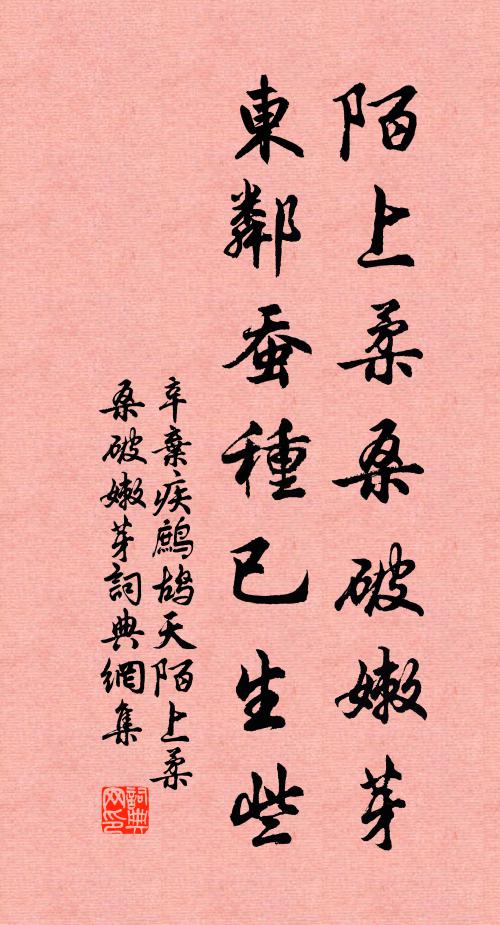 陌上柔桑破嫩芽
東鄰蚕種已生些
辛棄疾鷓鴣天陌上柔
桑破嫩芽詞典網集
詞典網印